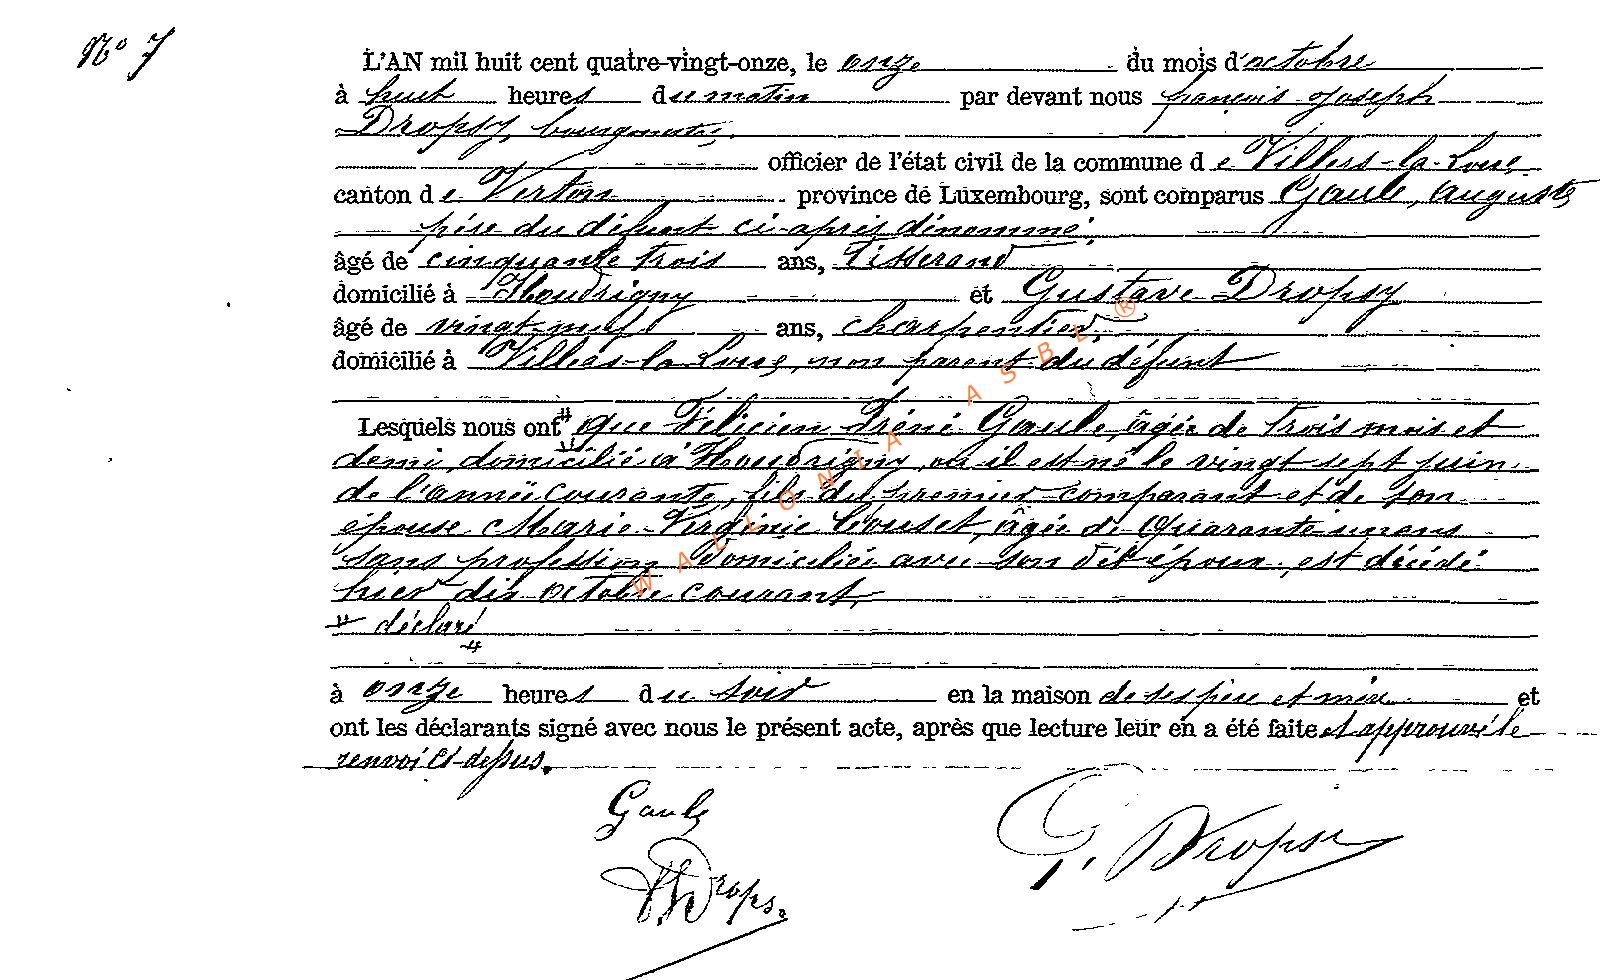 N° 7
L'AN mil huit cent quatre-vingt-onze, le onze du mois d'octobre
à huit heures du matin par devant nous françois joseph
Dropsy, bourgmestre,
officier de l'état civil de la commune de Villers-la-Loue,
canton de Virton province de Luxembourg, sont comparus Gaule, auguste
père du défunt ci-après dénommé,
âgé de cinquante trois ans, Tisserand
domicilié à Houdrigny et Gustave Dropsy
âgé de vingt-neuf ans, charpentier,
domicilié à Villers-la-Loue, non parent du défunt
Lesquels nous ont # que Félicien Iréné Gaule, âgée de trois mois et
demi, domicilié à Houdrigny, où il est né le vingt sept juin
de l'année courante, fils du premier comparant et de son
épouse Marie-Virginie Couset, âgée de quarante un ans
sans profession domiciliée avec son dit époux, est décédé
hier dix octobre courant,
# déclaré #
à onze heures du soir en la maison de ses père et mère et
ont les déclarants signé avec nous le présent acte, après que lecture leur en a été faite et approuvé le
renvoi ci-dessus.
Gaule
G. Dropsy
Dropsy
WALLONIA ASBL ®